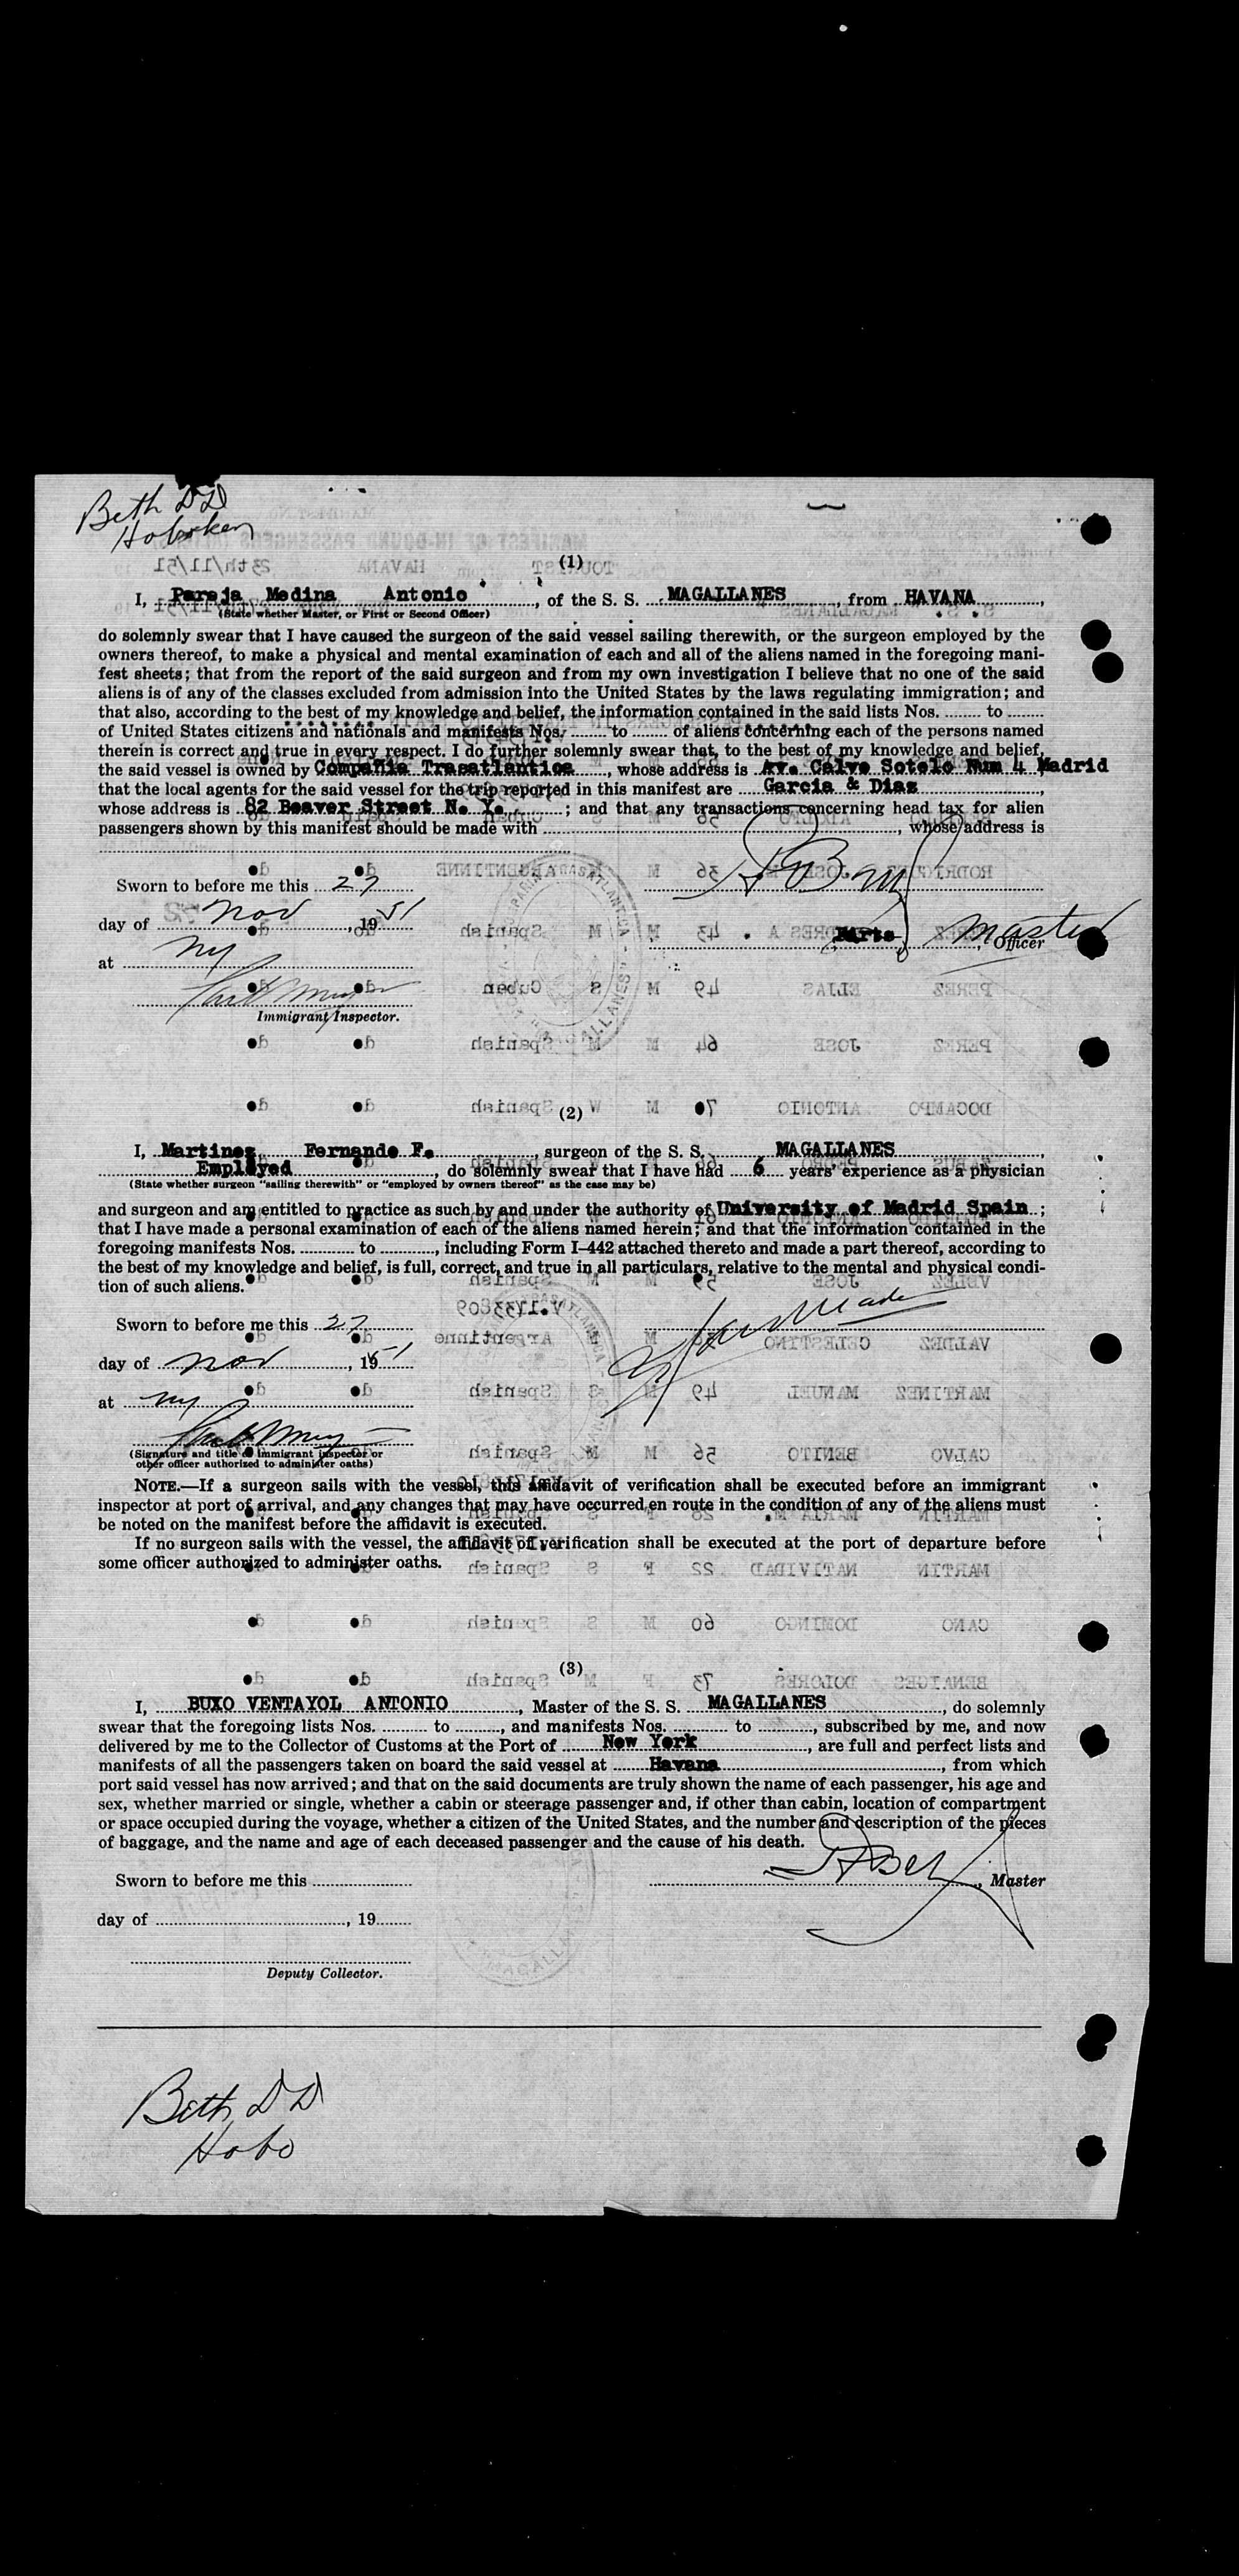 Beth DD
Hoboken
(1)
I, Pareja Medina Antonio, of the S. S. MAGALLANES, from HAVANA,
(State whether Master, or First or Second Officer)
do solemnly swear that I have caused the surgeon of the said vessel sailing therewith, or the surgeon employed by the
owners thereof, to make a physical and mental examination of each and all of the aliens named in the foregoing mani-
fest sheets; that from the report of the said surgeon and from my own investigation I believe that no one of the said
aliens is of any of the classes excluded from admission into the United States by the laws regulating immigration; and
that also, according to the best of my knowledge and belief, the information contained in the said lists Nos. ........ to ........
of United States citizens and nationals and manifests Nos. ........ to ........ of aliens concerning each of the persons named
therein is correct and true in every respect. I do further solemnly swear that, to the best of my knowledge and belief,
the said vessel is owned by Compañia Trasatlantica, whose address is Av. Calvo Sotelo Num 4 Madrid
that the local agents for the said vessel for the trip reported in this manifest are Garcia & Diaz,
whose address is 82 Beaver Street N. Y. ; and that any transactions concerning head tax for alien
passengers shown by this manifest should be made with ........, whose address is
Sworn to before me this 27
day of Nov, 1951
Master
Officer
at NY
Immigrant Inspector.
(2)
I, Martinez Fernando F., surgeon of the S. S. MAGALLANES,
Employed, do solemnly swear that I have had 6 years' experience as a physician
(State whether surgeon "sailing therewith" or "employed by owners thereof" as the case may be)
and surgeon and am entitled to practice as such by and under the authority of University of Madrid Spain ;
that I have made a personal examination of each of the aliens named herein; and that the information contained in the
foregoing manifests Nos. ........ to ........, including Form I-442 attached thereto and made a part thereof, according to
the best of my knowledge and belief, is full, correct, and true in all particulars, relative to the mental and physical condi-
tion of such aliens.
Sworn to before me this 27
day of Nov, 1951
at NY
(Signature and title of immigrant inspector or
other officer authorized to administer oaths)
NOTE.—If a surgeon sails with the vessel, this affidavit of verification shall be executed before an immigrant
inspector at port of arrival, and any changes that may have occurred en route in the condition of any of the aliens must
be noted on the manifest before the affidavit is executed.
If no surgeon sails with the vessel, the affidavit of verification shall be executed at the port of departure before
some officer authorized to administer oaths.
(3)
I, BUXO VENTAYOL ANTONIO, Master of the S. S. MAGALLANES, do solemnly
swear that the foregoing lists Nos. ........ to ........, and manifests Nos. ........ to ........, subscribed by me, and now
delivered by me to the Collector of Customs at the Port of New York, are full and perfect lists and
manifests of all the passengers taken on board the said vessel at Havana, from which
port said vessel has now arrived; and that on the said documents are truly shown the name of each passenger, his age and
sex, whether married or single, whether a cabin or steerage passenger and, if other than cabin, location of compartment
or space occupied during the voyage, whether a citizen of the United States, and the number and description of the pieces
of baggage, and the name and age of each deceased passenger and the cause of his death.
Sworn to before me this ........
, Master
day of ........, 19....
Deputy Collector.
Beth DD
Hobo